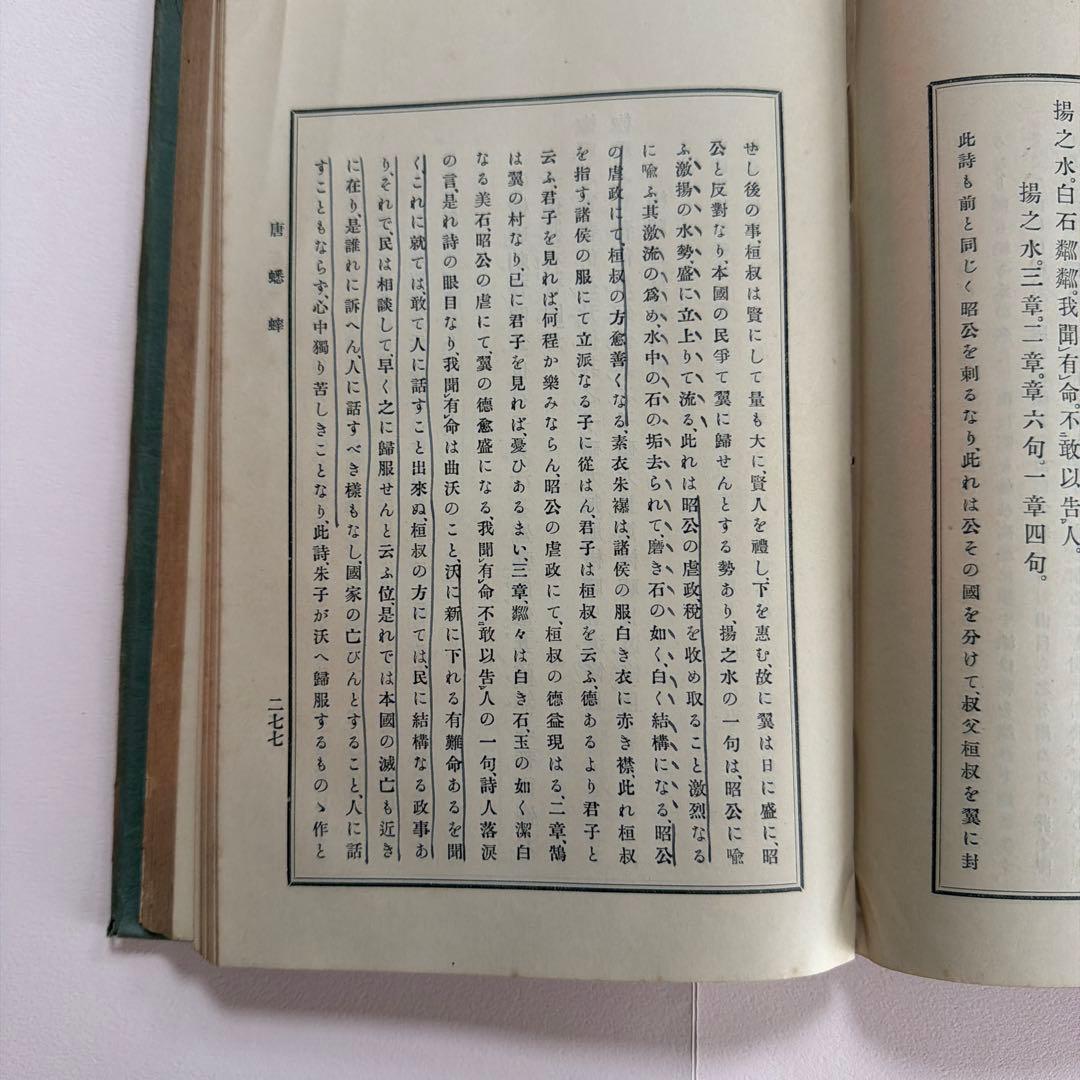 揚之水。白石粼粼。我聞有命。不敢以告人。
揚之水。三章。二章。章六句。一章四句。
此詩も前と同じく昭公を刺るなり、此れは公その國を分けて、叔父桓叔を翼に封
せし後の事、桓叔は賢にして量も大に、賢人を禮し、下を惠む、故に翼は日に盛に、昭
公と反對なり、本國の民爭て翼に歸せんとする勢あり、揚之水の一句は、昭公に喩
ふ、激揚の水勢、盛に立上りて流る、此れは昭公の虐政、稅を收め取ること激烈なる
に喩ふ、其激流の爲め、水中の石の垢去られて、磨き石の如く、白く結構になる、昭公
の虐政にて、桓叔の方愈善くなる、素衣朱襮は、諸侯の服、白き衣に赤き襟、此れ桓叔
を指す、諸侯の服にて立派なる子に從はん、君子は桓叔を云ふ、德あるより君子と
云ふ、君子を見れば、何程か樂みならん、昭公の虐政にて、桓叔の德益現はる、二章、鵠
は翼の村なり、已に君子を見れば、憂ひあるまい、三章粼々は白き石、玉の如く潔白
なる美石、昭公の虐にて、翼の德愈盛になる、我聞有命不敢以告人の一句、詩人落淚
の言、是れ詩の眼目なり、我聞有命は曲沃のこと、沃に新に下れる有難命あるを聞
く、これに就ては、敢て人に話すこと出來ぬ、桓叔の方にては、民に結構なる政事あ
り、それで、民は相談して、早く之に歸服せんと云ふ位、是れでは本國の滅亡も近き
に在り、是誰れに訴へん、人に話すべき樣もなし、國家の亡びんとすること、人に話
すこともならず、心中獨り苦しきことなり、此詩、朱子が沃へ歸服するものゝ作と
唐 蟋蟀
二七七